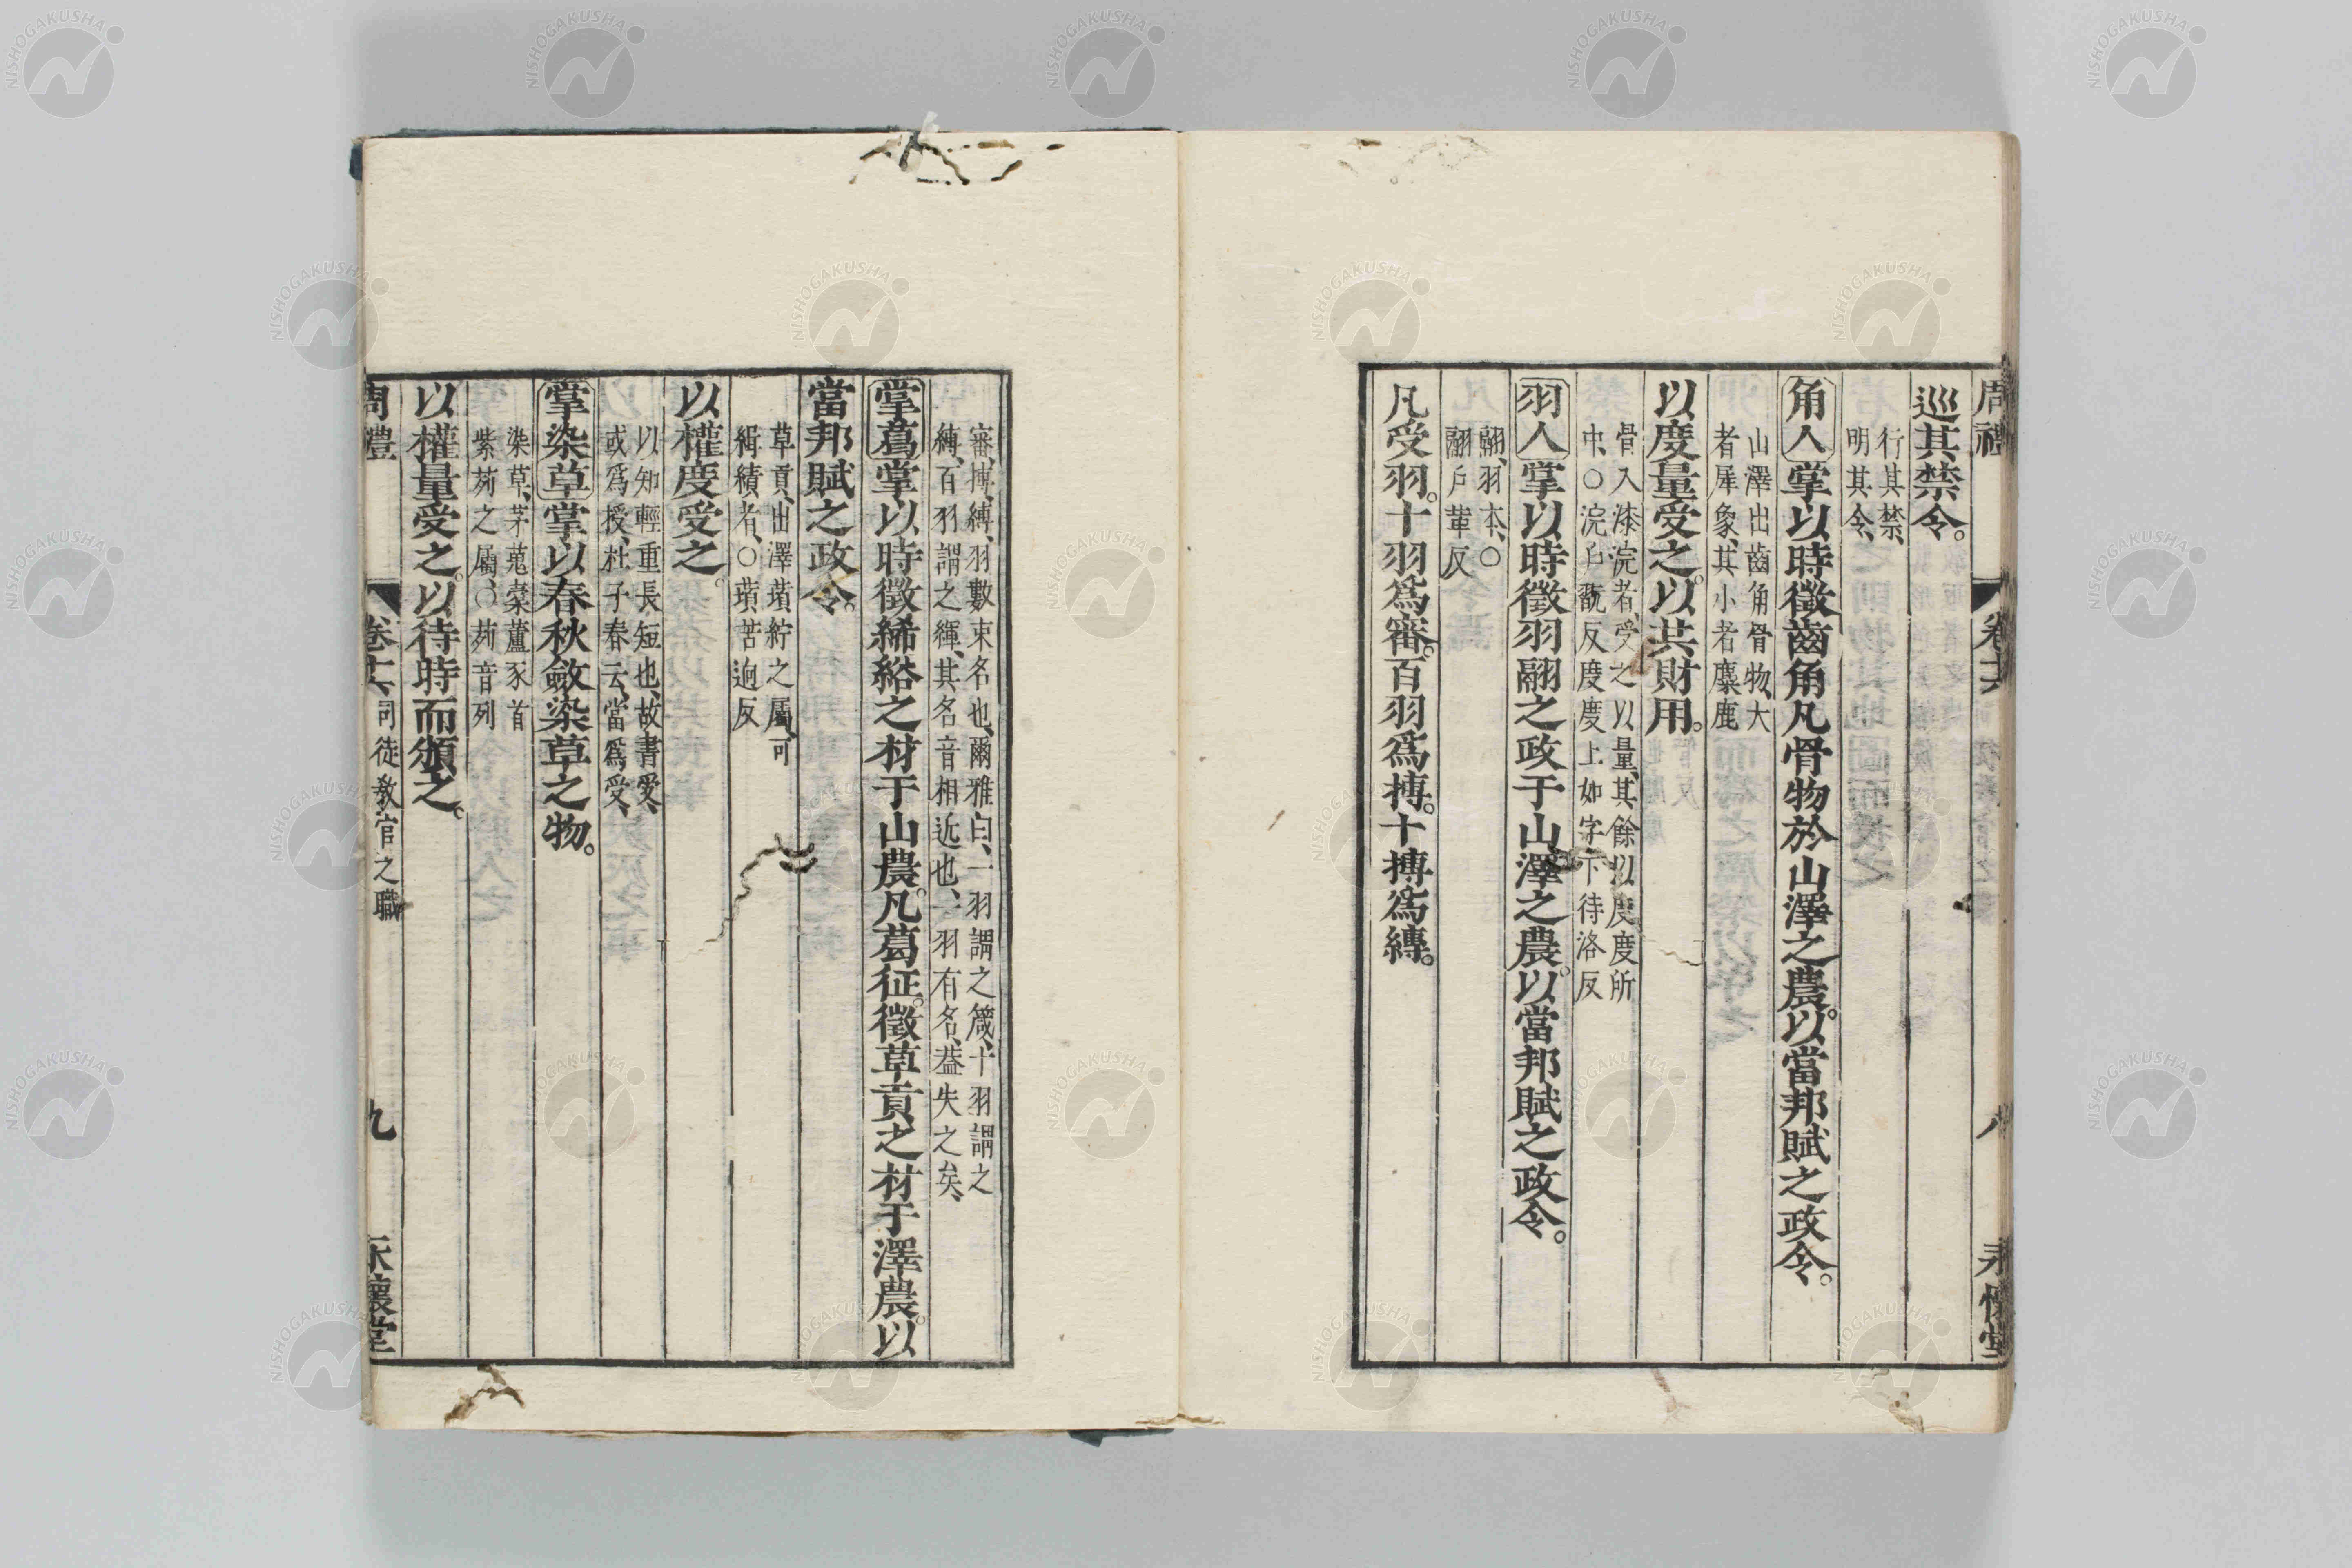 周禮 卷十六 八 永懷堂
巡其禁令。
行其禁、
明其令、
角人掌以時徵齒角凡骨物於山澤之農。以當邦賦之政令。
山澤出齒角骨物、大
者犀象、其小者麋鹿
以度量受之。以共財用。
骨入漆浣者、受之以量、其餘以度度所
中、○浣戶翫反度度上如字下待洛反
羽人掌以時徵羽翮之政于山澤之農。以當邦賦之政令。
翮、羽本、○
翮戶革反
凡受羽。十羽爲審。百羽爲摶。十摶爲縛。
審、摶、縛、羽數束名也、爾雅曰、一羽謂之箴、十羽謂之
縛、百羽謂之緷、其名音相近也、一羽有名、蓋失之矣、
掌葛掌以時徵絺綌之材于山農。凡葛征。徵草貢之材于澤農。以
當邦賦之政令。
草貢、出澤䔛紵之屬、可
緝績者、○䔛苦迥反
以權度受之。
以知輕重長短也、故書受、
或爲授、杜子春云、當爲受、
掌染草掌以春秋斂染草之物。
染草、茅蒐橐蘆豕首
紫茢之屬、○茢音列
以權量受之。以待時而頒之。
周禮 卷十六 司徒教官之職 九 永懷堂
NISHOGAKUSHA